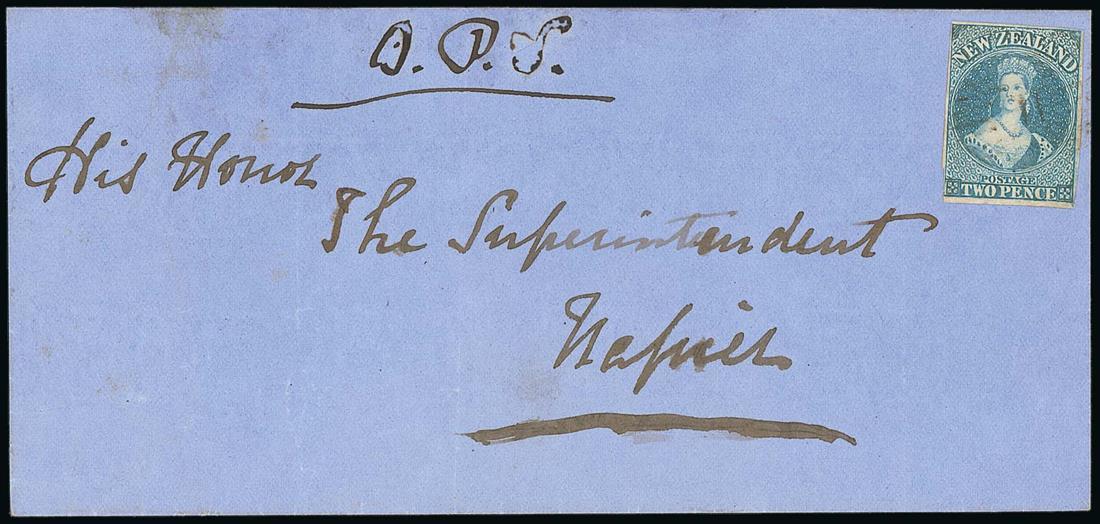 O. P. S.
His Honor
The Superintendent
Napier
NEW ZEALAND
POSTAGE
TWO PENCE